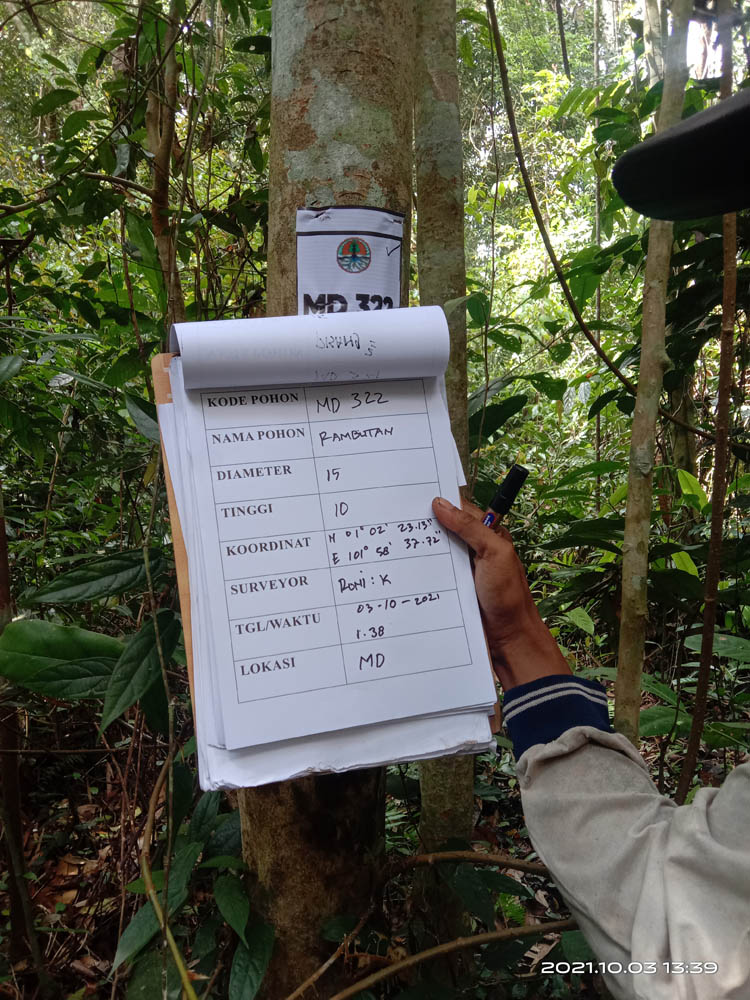 MD 322
KODE POHON MD 322
NAMA POHON RAMBUTAN
DIAMETER 15
TINGGI 10
KOORDINAT N 01° 02' 23.13"
E 101° 58' 37.72"
SURVEYOR RONI : K
TGL/WAKTU 03-10-2021
1.38
LOKASI MD
2021.10.03 13:39